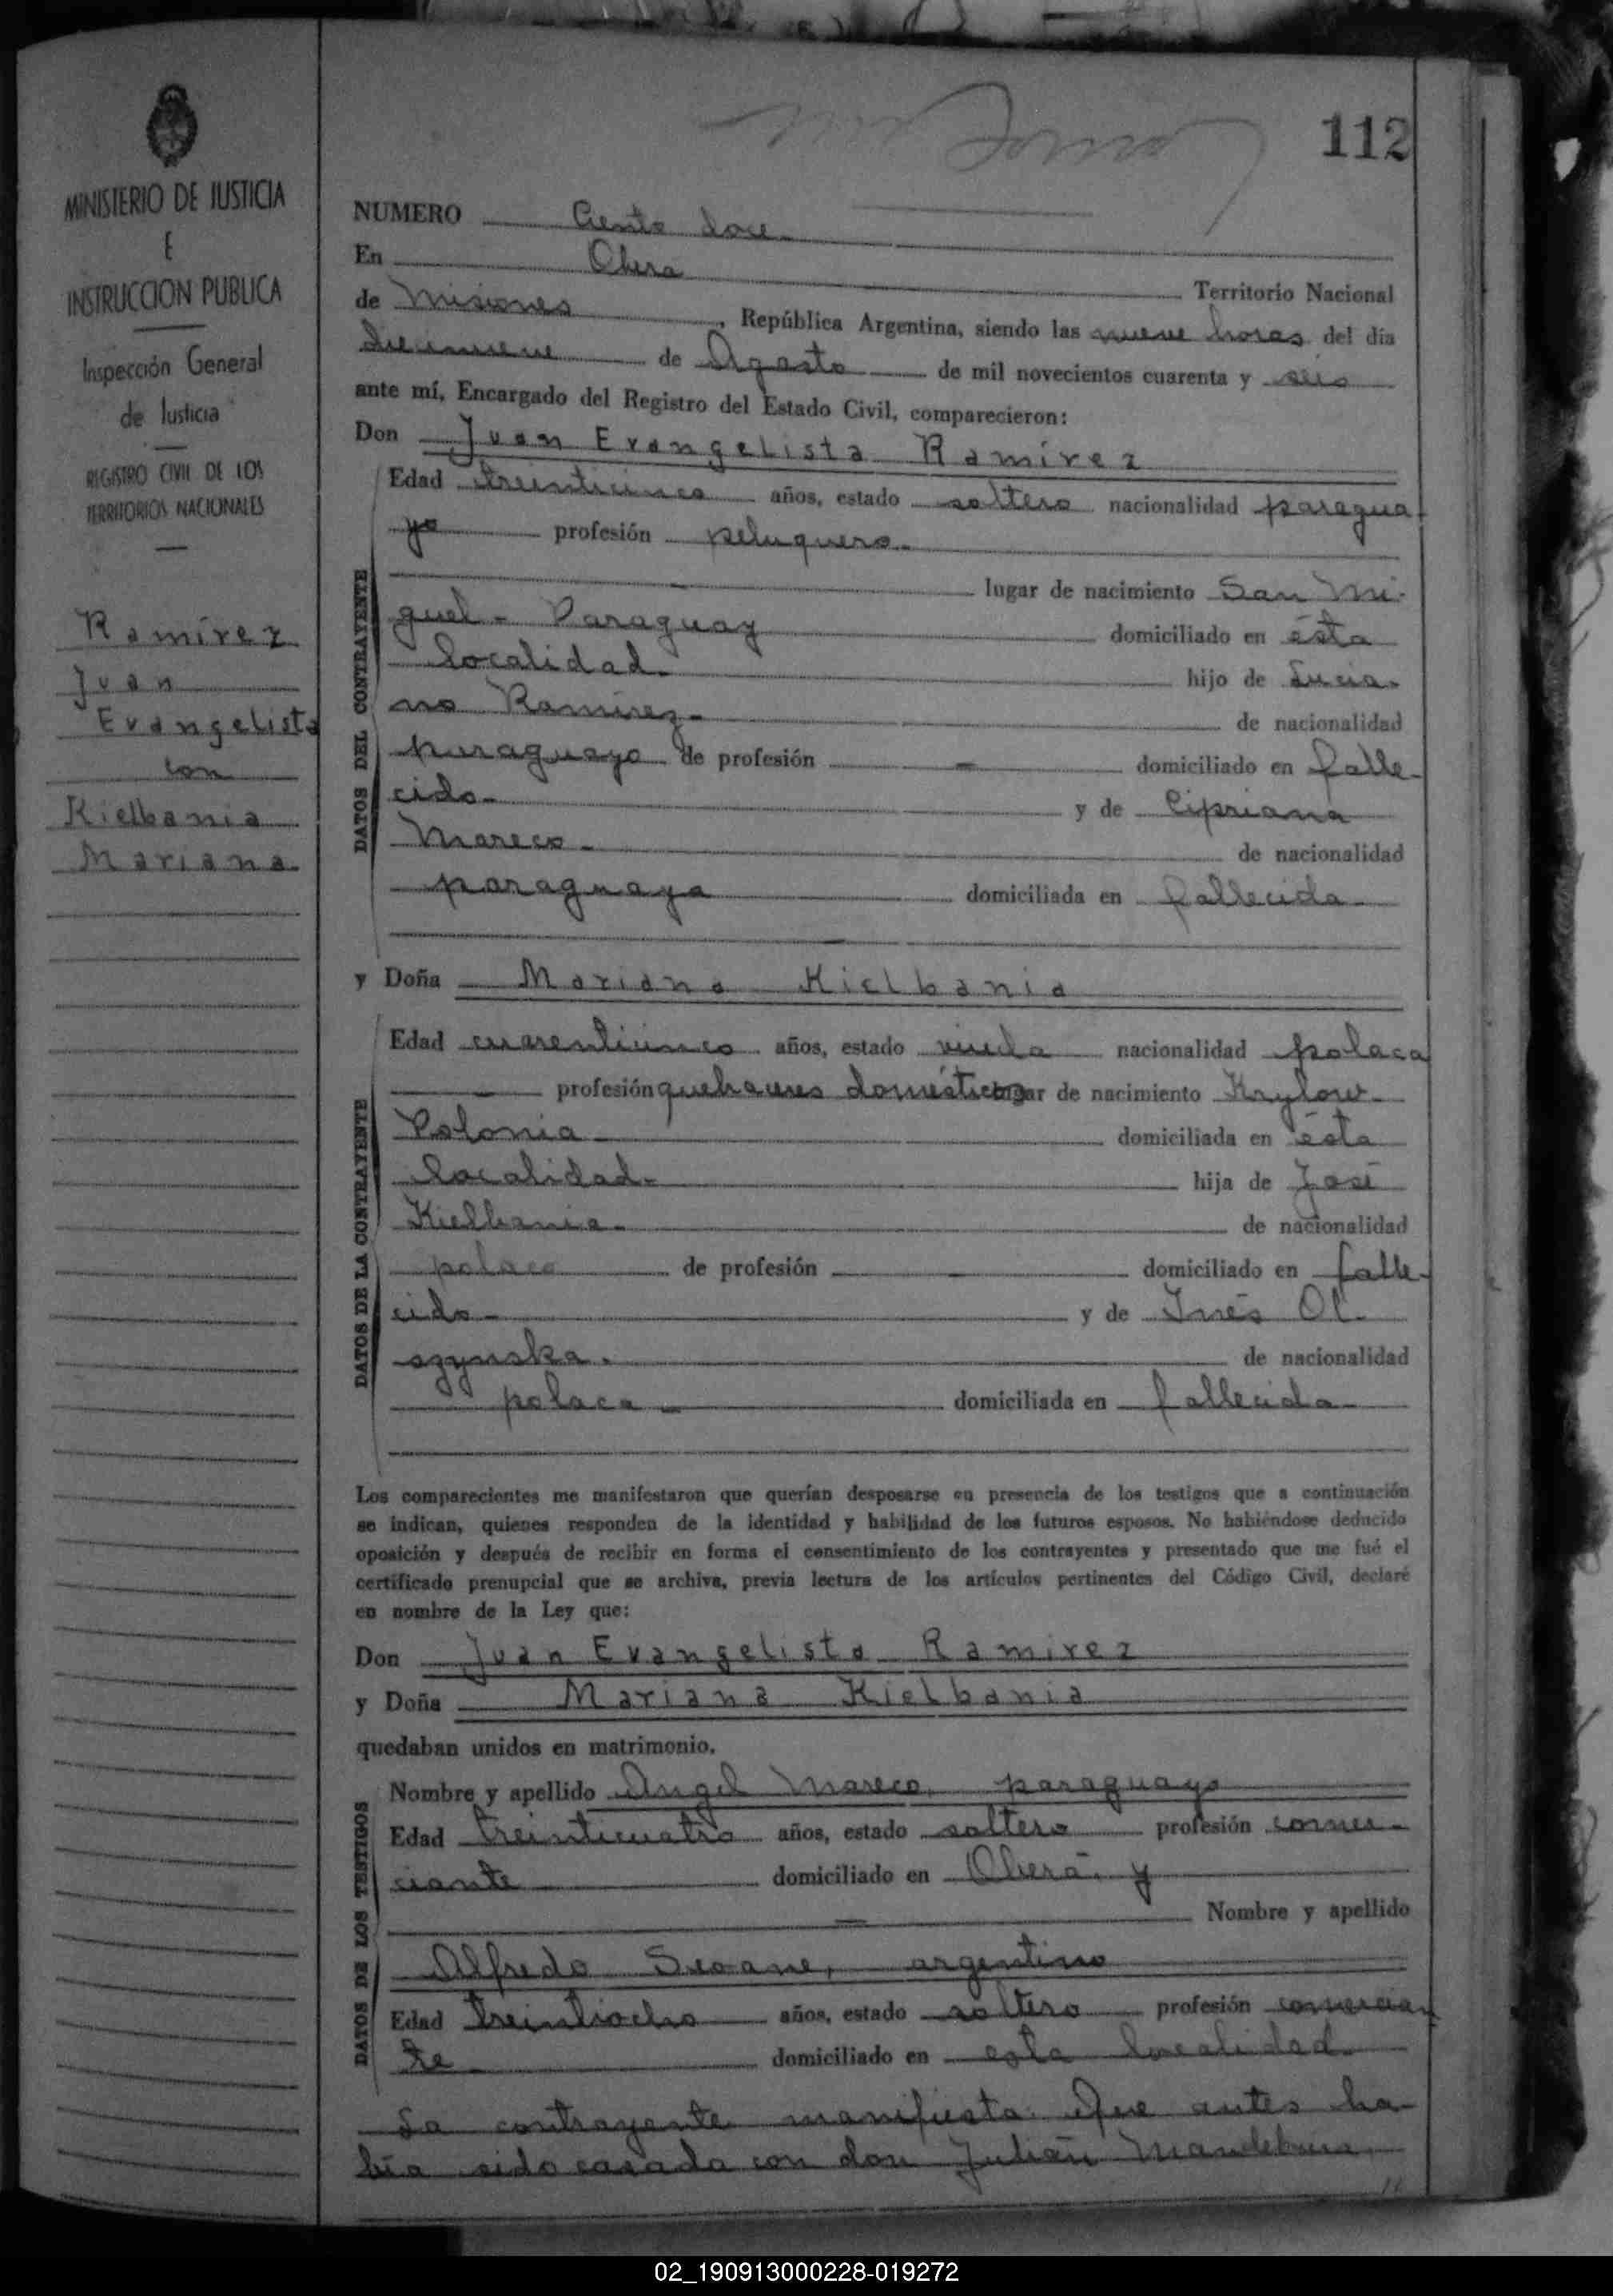 112
MINISTERIO DE JUSTICIA
E
INSTRUCCION PUBLICA
Inspección General
de Justicia
REGISTRO CIVIL DE LOS
TERRITORIOS NACIONALES
Ramírez
Juan
Evangelista
con
Kielbania
Mariana
NUMERO Ciento doce
En Obera Territorio Nacional
de Misiones, República Argentina, siendo las nueve horas del día
diecinueve de Agosto de mil novecientos cuarenta y seis
ante mí, Encargado del Registro del Estado Civil, comparecieron:
Don Juan Evangelista Ramírez
DATOS DEL CONTRAYENTE
Edad treinticinco años, estado soltero nacionalidad paragua
yo profesión peluquero.
lugar de nacimiento San Mi-
guel - Paraguay domiciliado en ésta
localidad. hijo de Lucia-
no Ramírez- de nacionalidad
paraguayo de profesión — domiciliado en falle-
cido- y de Cipriana
Mareco- de nacionalidad
paraguaya domiciliada en fallecida-
y Doña Mariana Kielbania
DATOS DE LA CONTRAYENTE
Edad cuarenticinco años, estado viuda nacionalidad polaca
profesión quehaceres domésticos lugar de nacimiento Krylow-
Polonia- domiciliada en ésta
localidad- hija de José
Kielbania- de nacionalidad
polaco de profesión — domiciliado en falle-
cido- y de Inés Ol-
szynska. de nacionalidad
polaca- domiciliada en fallecida-
Los comparecientes me manifestaron que querían desposarse en presencia de los testigos que a continuación
se indican, quienes responden de la identidad y habilidad de los futuros esposos. No habiéndose deducido
oposición y después de recibir en forma el consentimiento de los contrayentes y presentado que me fué el
certificado prenupcial que se archiva, previa lectura de los artículos pertinentes del Código Civil, declaré
en nombre de la Ley que:
Don Juan Evangelista Ramirez
y Doña Mariana Kielbania
quedaban unidos en matrimonio.
DATOS DE LOS TESTIGOS
Nombre y apellido Angel Mareco, paraguayo
Edad treinticuatro años, estado soltero profesión comer-
ciante domiciliado en Oberá, y
Nombre y apellido
Alfredo Seoane, argentino
Edad treintiocho años, estado soltero profesión comercian
te- domiciliado en esta localidad
La contrayente manifiesta: Que antes ha-
bía sido casada con don Julián
02_190913000228-019272